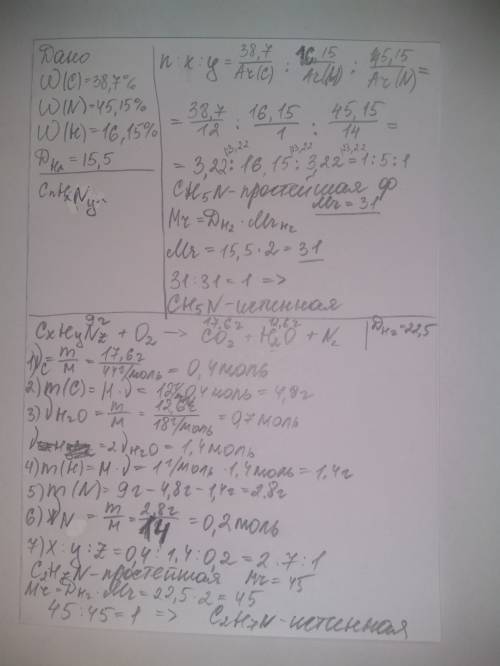 Дано
W(C)=38,7%
W(N)=45,15%
W(H)=16,15%
D_H₂=15,5
CnHxNy
n:x:y = 38,7/Ar(C) : 16,15/Ar(H) : 45,15/Ar(N) =
= 38,7/12 : 16,15/1 : 45,15/14 =
= 3,22 : 16,15 : 3,22 = 1:5:1
CH₅N - простейшая ф
Mr = 31
Mr = D_H₂ · Mr_H₂
Mr = 15,5 · 2 = 31
31:31 = 1 =>
CH₅N - истенная
9г 17,6г 12,6г
CxHyNz + O₂ → CO₂ + H₂O + N₂ D_H₂=22,5
1) √C = m/м = 17,6г/44г/моль = 0,4 моль
2) m(C) = М · √ = 12 · 0,4 моль = 4,8г
3) √H₂O = m/м = 12,6г/18г/моль = 0,7 моль
= 2√H₂O = 1,4 моль
4) m(H) = М · √ = 1г/моль · 1,4 моль = 1,4г
5) m(N) = 9г - 4,8г - 1,4г = 2,8г
6) √N = m/м = 2,8г/14 = 0,2 моль
7) X : y : Z = 0,4 : 1,4 : 0,2 = 2 · 7 : 1
C₂H₇N - простейшая Mr = 45
Mr = D_H₂ · Mr = 22,5 · 2 = 45
45 : 45 = 1 => C₂H₇N - истенная